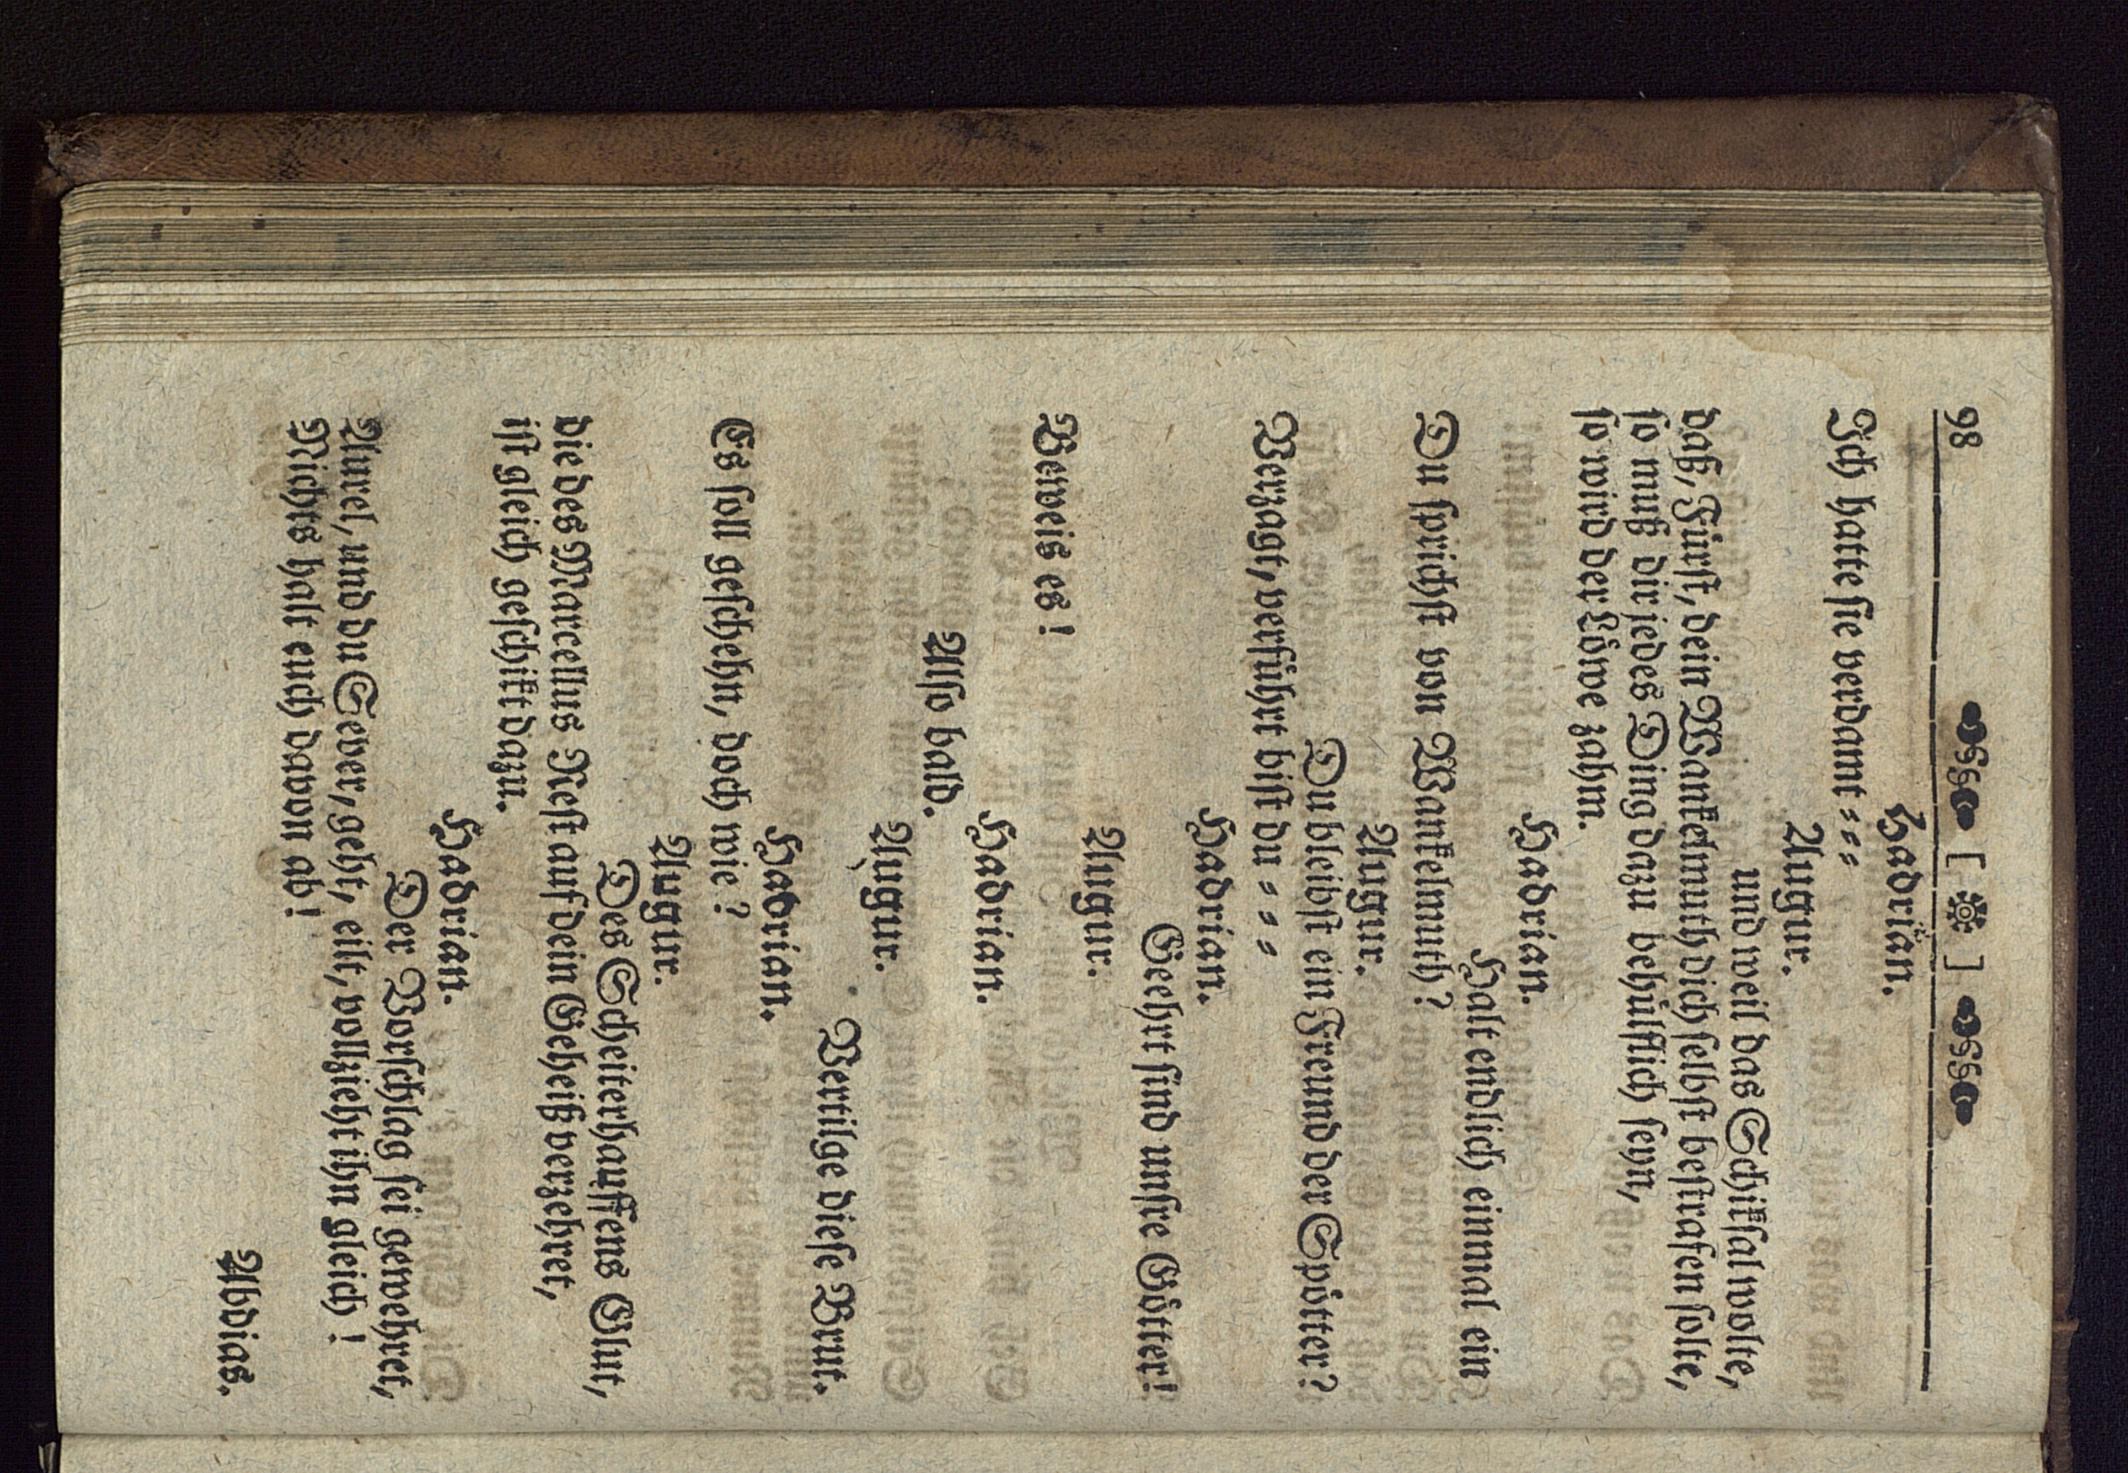 98 [ ❋ ]
Hadrian.
Ich hatte ſie verdammt ⸗ ⸗ ⸗
Augur.
und weil das Schikſal wolte,
daß, Fürſt, dein Wankelmuth dich ſelbſt beſtrafen ſolte,
ſo muß dir jedes Ding dazu behülflich ſeyn,
ſo wird der Löwe zahm.
Hadrian.
Halt endlich einmal ein
Du ſprichſt von Wankelmuth?
Augur.
Du bleibſt ein Freund der Spötter?
Verzagt, verführt biſt du ⸗ ⸗ ⸗
Hadrian.
Geehrt ſind unſre Götter!
Augur.
Beweis es!
Hadrian.
Alſo bald.
Augur.
Vertilge dieſe Brut.
Hadrian.
Es ſoll geſchehn, doch wie?
Augur.
Des Scheiterhauffens Glut,
die des Marcellus Reſt auf dein Geheiß verzehret,
iſt gleich geſchikt dazu.
Hadrian.
Der Vorſchlag ſei gewehret,
Aurel, und du Sever, geht, eilt, vollzieht ihn gleich!
Nichts halt euch davon ab!
Abdias.